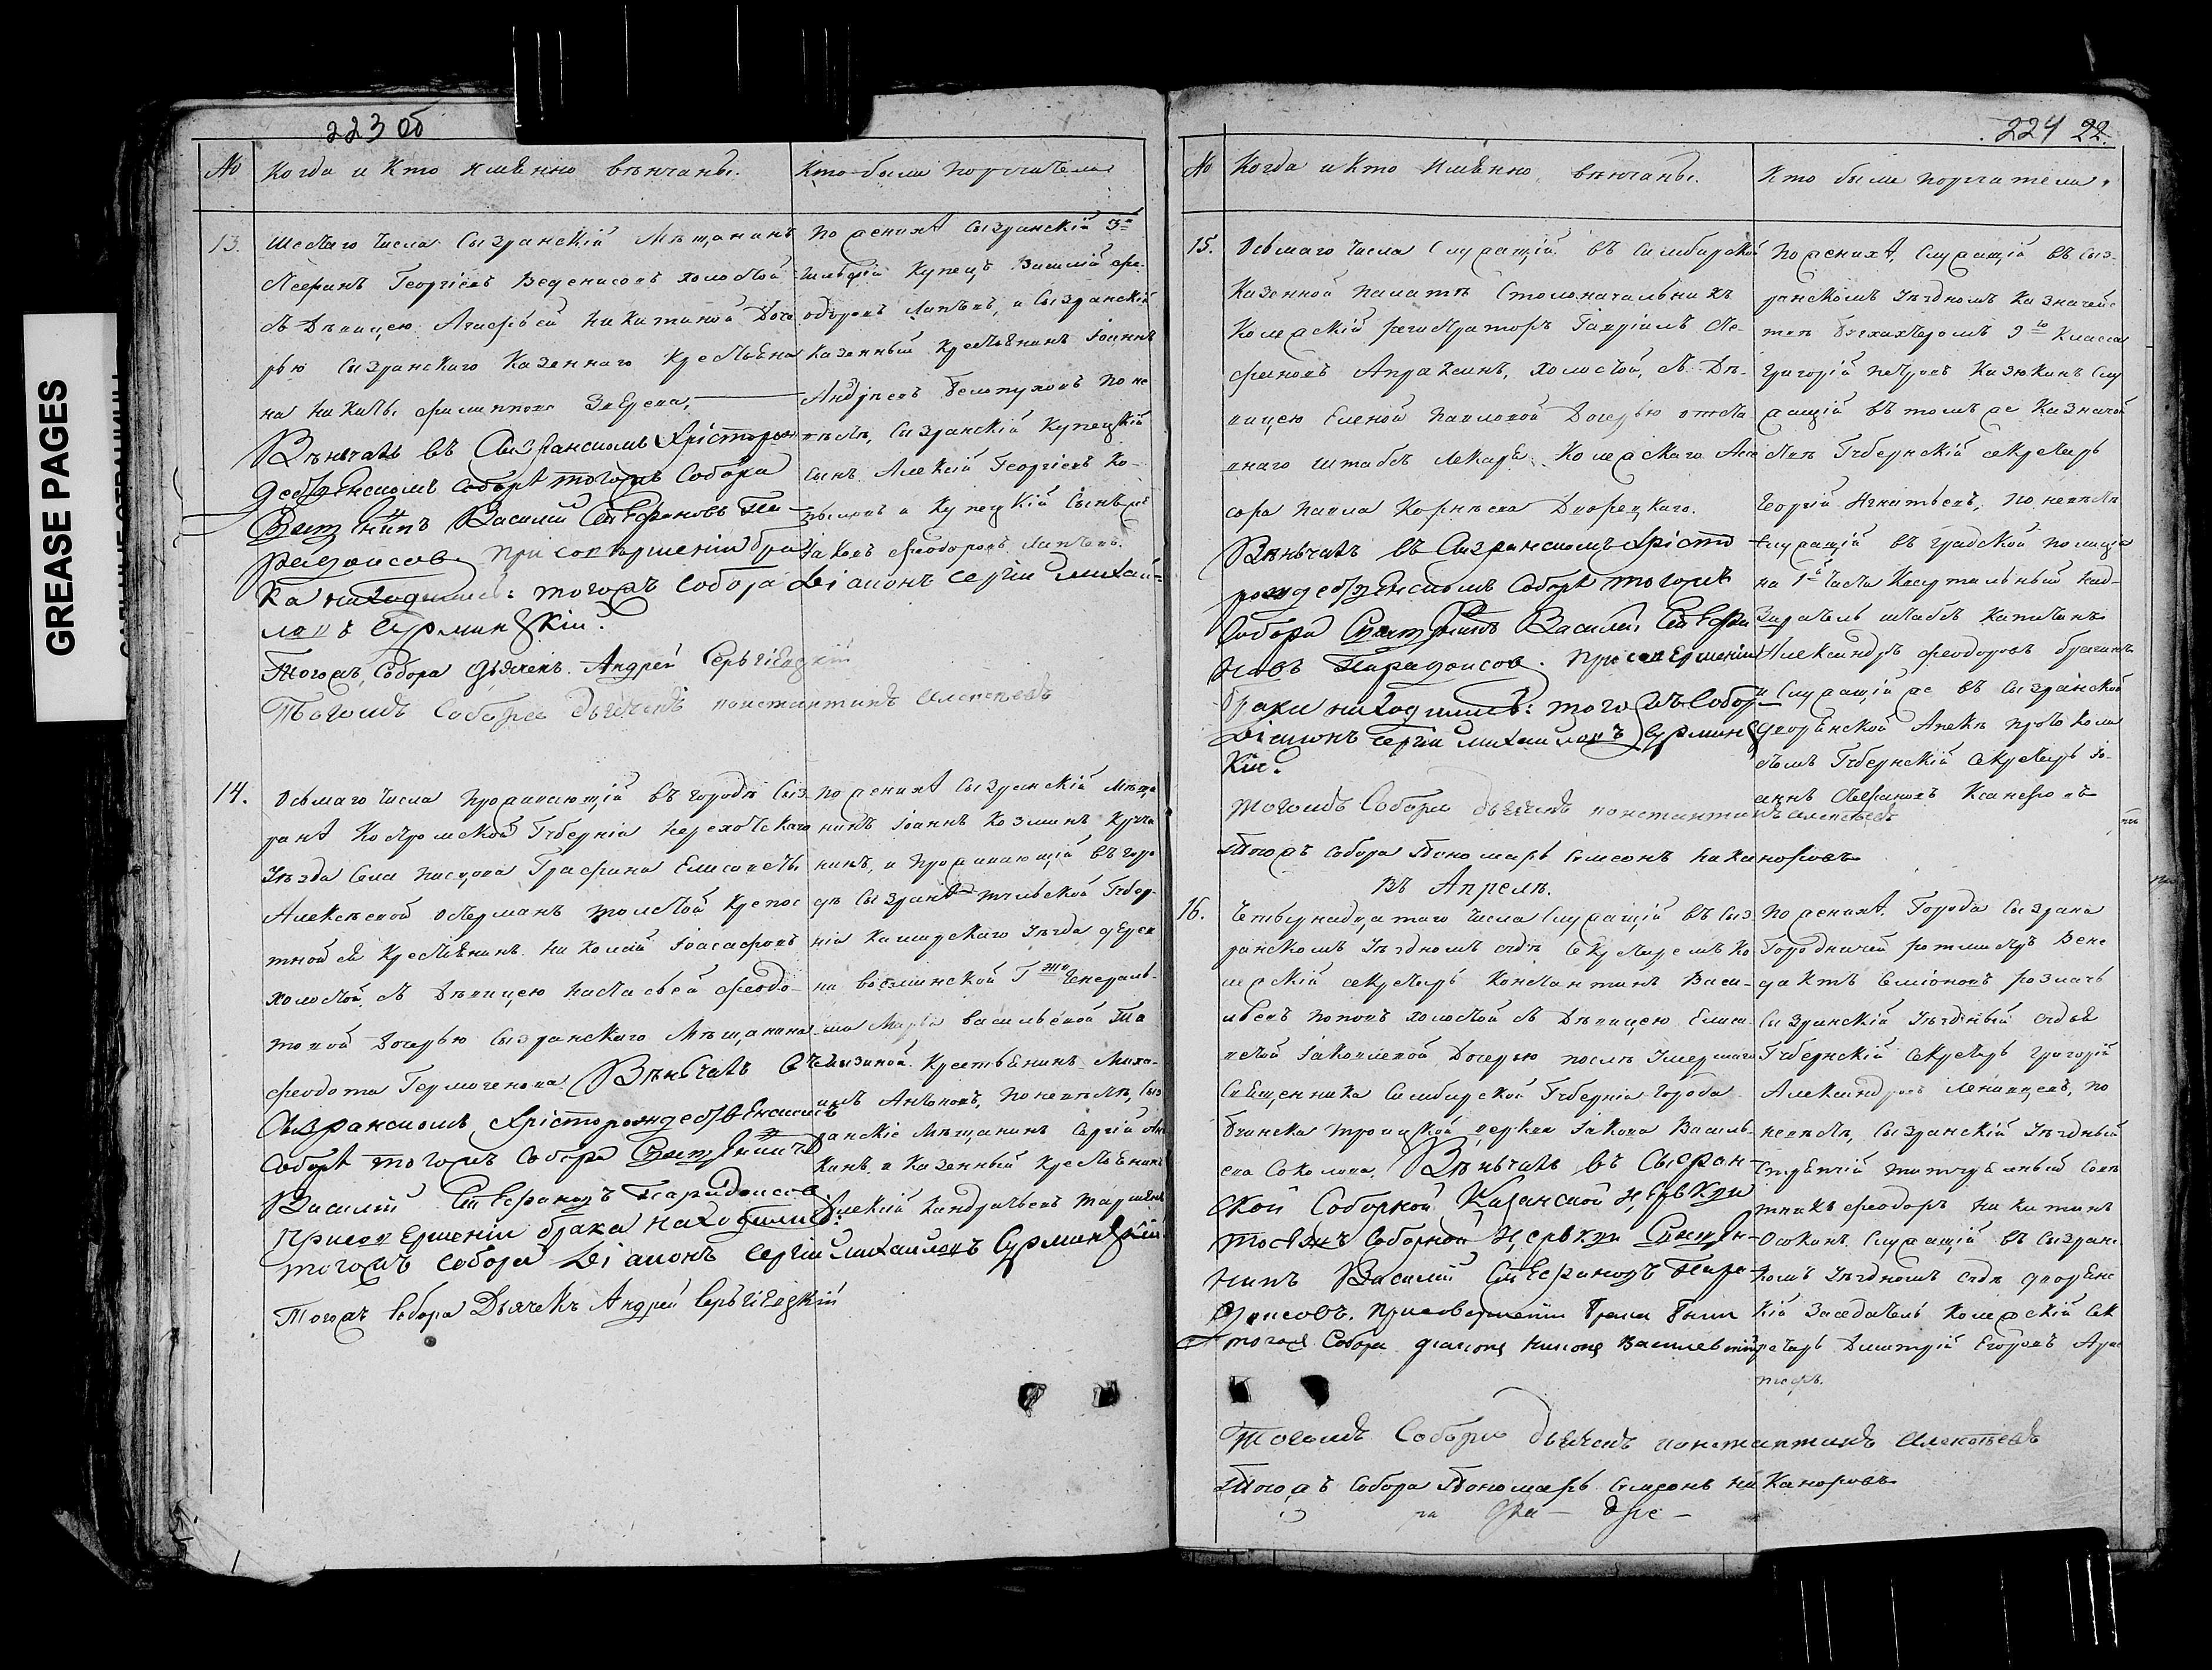 GREASE PAGES
223 об
№ Когда и Кто имѣнно вѣнчаны.
Кто были поручители
13. Шестаго числа Сызранскій Мѣщанинъ
Георгіевъ холостой
съ Дѣвицею Агафьей Никитиной Доче
рью Сызранскаго Казеннаго Крестьяни
на Никиты Филиппова Зверева,
Вѣнчалъ въ Сызранскомъ Христорож
дественскомъ Соборѣ тогожъ Собора
Священникъ Василій Стефановъ Па-
радоксовъ При совершеніи бра
ка находились: тогожъ Собора Діаконъ Сергій Михаи-
ловъ Сурминскій
Тогожъ Собора Дьячекъ Андрей Сергіевскій
Тогожъ Собора дьячекъ Константинъ Алексѣевъ
По женихѣ Сызранскій 3й
гильдіи Купецъ Василій Фе-
одоровъ и Сызранскій
Казенный Крестьянинъ Іоаннъ
Андреевъ по не
вѣстѣ, Сызранскій Купецкій
сынъ Алексій Георгіевъ
и Купецкій Сынъ
Іаковъ Феодоровъ
14. Осьмаго числа Проживающій въ городѣ Сыз-
ранѣ Костромской Губерніи Нерехотскаго
Уѣзда Села Писцова Графини Елисаветы
Алексѣевой Остерманъ Толстой Крепос
тной ея Крестьянинъ Николай Іоасафовъ
холостой, съ Дѣвицею Настасьей Феодо-
товой Дочерью Сызранскаго Мѣщанина
Феодота Гермогенова. Вѣнчалъ въ
Сызранскомъ Христорождественскомъ
Соборѣ тогожъ Собора Священникъ
Василій Стефановъ Парадоксовъ
При совершеніи брака находились:
тогожъ Собора Діаконъ Сергій Михаиловъ Сурминскій
Тогожъ Собора Дьячекъ Андрей Сергіевскій
По женихѣ Сызранскій Мѣща
нинъ Іоаннъ Козминъ
нинъ, и Проживающій въ горо
дѣ Сызранѣ Тульской Губер-
ніи Каширскаго Уѣзда дерев
ни Генераль-
ши Марьи Васильевой
Крестьянинъ Миха-
илъ Антоновъ, По невѣстѣ, Сыз
ранскіе Мѣщанинъ Сергій
и Казенный Крестьянинъ
Алексій Кондратьевъ
224 22.
№ Когда и Кто Имѣнно вѣнчаны.
Кто были поручатели.
15. Осьмаго числа Служащій въ Симбирской
Казенной Палатѣ Столоначальникъ
Колежскій регистраторъ Гавріилъ Сте-
фановъ Апраксинъ, холостой, съ Дѣ-
вицею Еленой Павловой Дочерью отста
внаго штабъ лекаря Колежскаго Асе
сора Павла Корнѣева Дворецкаго.
Вѣнчалъ въ Сызранскомъ Христо
рождественскомъ Соборѣ тогожъ
Собора Священникъ Василій Стефа
новъ Парадоксовъ. При совершеніи
брака находились: тогожъ Собора
Діаконъ Сергій Михаиловъ Сурминс
кій
Тогожъ Собора дьячекъ Константинъ Алексѣевъ
Тогожъ Собора Пономарь Симеонъ Никаноровъ
По женихѣ, Служащій въ Сыз-
ранскомъ Уѣздномъ Казначейс
твѣ Бухгалтеромъ 9го Класса
Григорій Петровъ Казюкинъ Слу
жащій въ томъ же Казначей
ствѣ Губернскій секретарь
Георгій Игнатьевъ, По невѣстѣ
Служащій въ градской полиціи
на 1й Части Квартальный над-
зиратель штабсъ Капитанъ
Александръ Феодоровъ
и Служащій же въ Сызранской
дворянской Опекѣ протокола
стомъ Губернскій Секретарь Іо-
аннъ Стефановъ
въ Апрѣлѣ.
16. Четвернадцатаго числа Служащій въ Сыз-
ранскомъ Уѣздномъ судѣ Секретаремъ Ко
лежскій секретарь Константинъ Васи-
льевъ Поповъ холостой съ Дѣвицею Елиса
ветой Іаковлевой Дочерью послѣ Умершаго
Священника Симбирской Губерніи Города
Буинска Троицкой церкви Іакова Василь-
ева Соколова. Вѣнчалъ въ Сызран-
ской Соборной Казанской Церкви
тоеяжъ Соборной Церкви Священ-
никъ Василій Стефановъ Пара-
доксовъ. При совершеніи брака были
тогожъ Собора діаконъ Никонъ Василевскій
Тогожъ Собора дьячекъ Константинъ Алексѣевъ
Тогожъ Собора Пономарь Симеонъ Никаноровъ
По женихѣ. Города Сызрана
Городничій ротмистръ Вене
дактъ Симіоновъ
Сызранскій Уѣздный судья
Губернскій Секретарь Григорій
Александровъ по
невѣстѣ, Сызранскій Уѣздный
Стряпчій Титулярный Совѣ
тникъ Феодоръ Никитинъ
Служащій въ Сызранс
комъ Уѣздномъ судѣ дворянс
кій Засѣдатель Колежскій Сек
ретарь Дмитрій Егоровъ